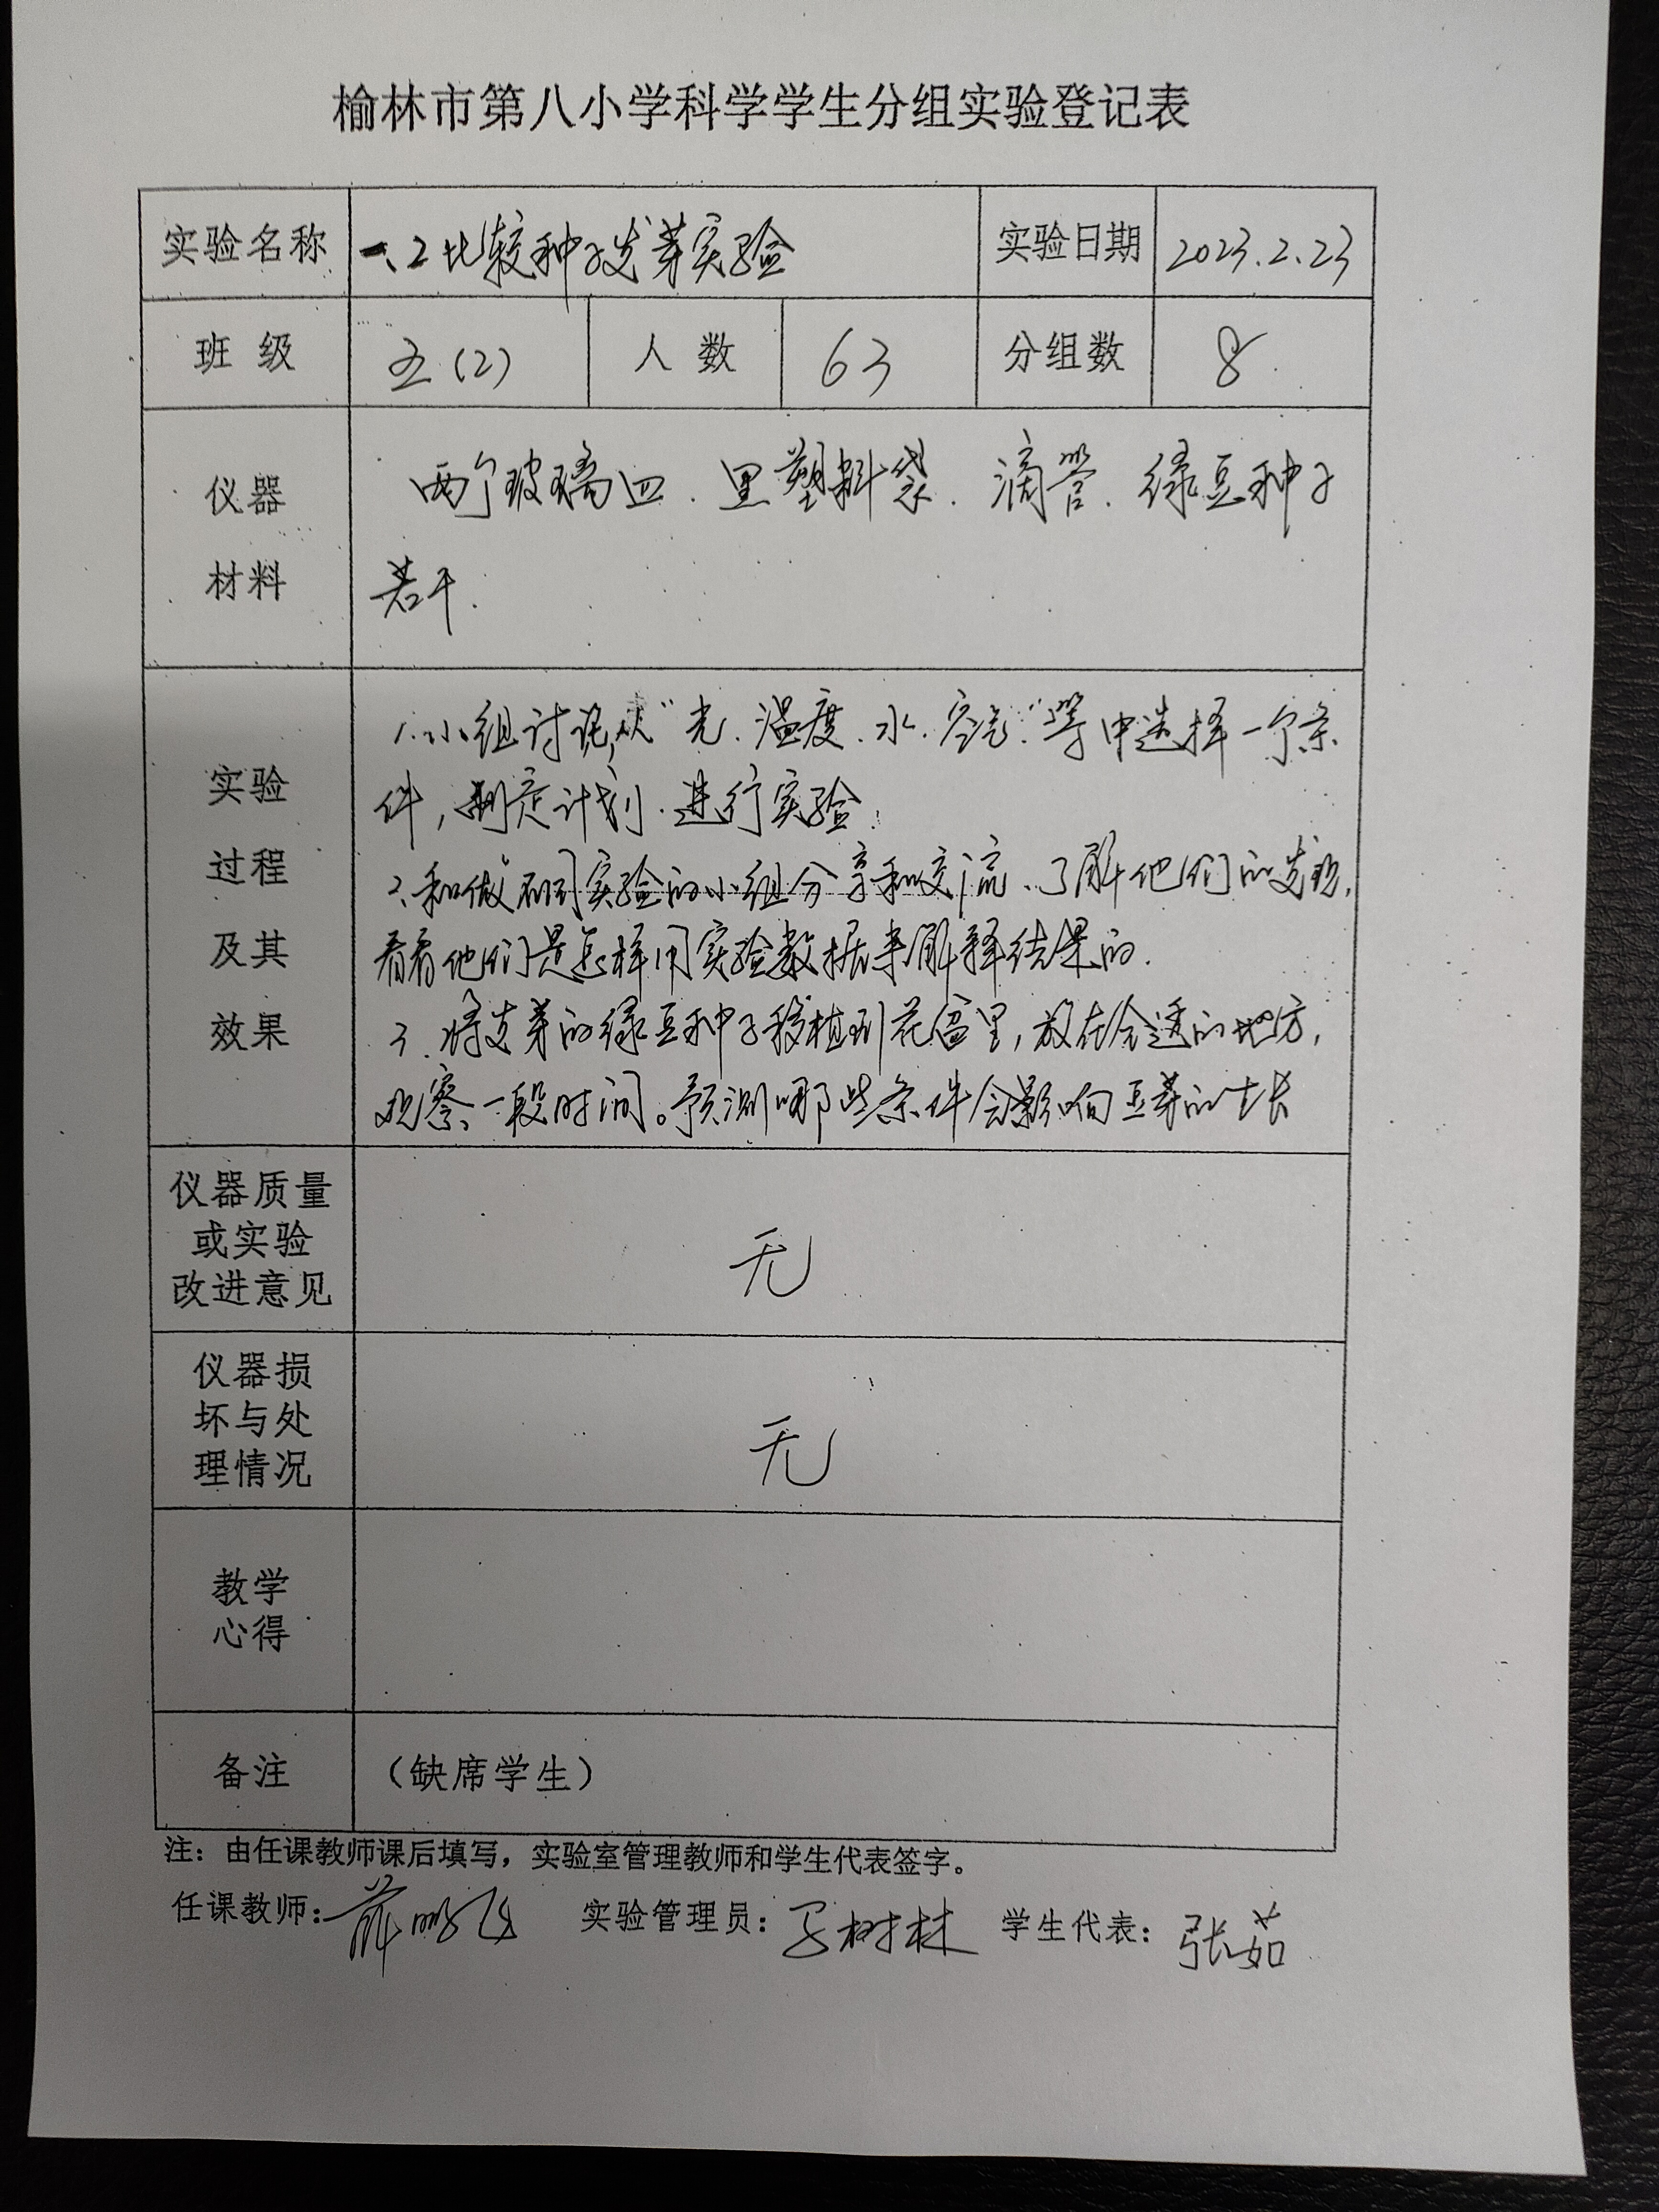 榆林市第八小学科学学生分组实验登记表
实验名称 一、2比较种子发芽实验 实验日期 2023.2.23
班级 五(2) 人数 63 分组数 8
仪器
材料
两个玻璃皿.黑塑料袋.滴管.绿豆种子
若干.
实验
过程
及其
效果
1.小组讨论,从"光.温度.水.空气."等中选择一个条
件,制定计划.进行实验.
2.和做不同实验的小组分享和交流、了解他们的发现,
看看他们是怎样用实验数据来解释结果的.
3.将发芽的绿豆种子移植到花盆里,放在合适的地方,
观察一段时间。预测哪些条件会影响豆芽的生长
仪器质量
或实验
改进意见
无
仪器损
坏与处
理情况
无
教学
心得
备注 (缺席学生)
注:由任课教师课后填写,实验室管理教师和学生代表签字。
任课教师:薛鹏飞 实验管理员:树林 学生代表:张茹